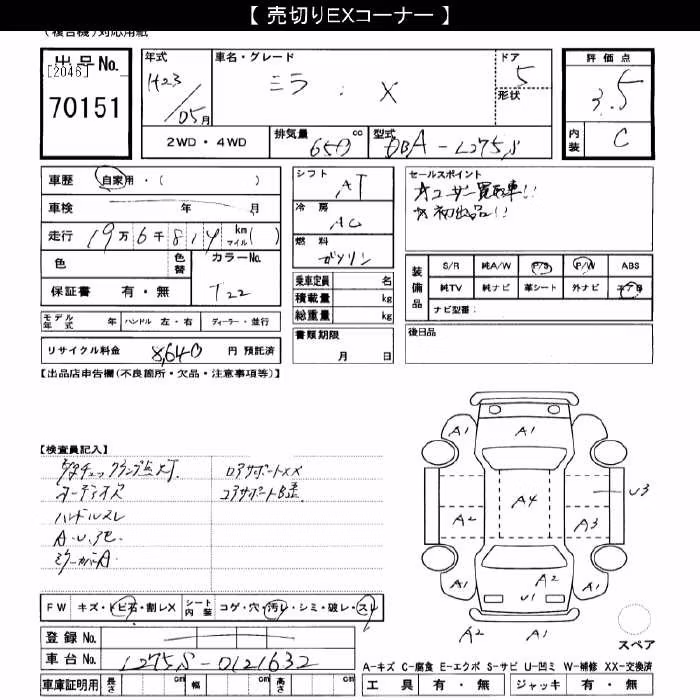 【 売切りEXコーナー 】
(複合機)対応用紙
出品No.
[2046]
70151
年式
H23/05月
車名・グレード
ミラ . X
ドア
5
形状
2WD・4WD
排気量 650 cc
型式 DBA-L275S
評価点
3.5
内装
C
車歴 自家用・( )
車検 年 月
走行 19万6千814 km マイル( )
色
色替
カラーNo.
T22
保証書 有・無
モデル年式 年 ハンドル 左・右 ディーラー・並行
リサイクル料金 8,640 円 預託済
シフト
AT
冷房
AC
燃料
ガソリン
乗車定員 名
積載量 kg
総重量 kg
書類期限
月 日
セールスポイント
☆ユーザー買取車!!
☆初出品!!
装備品
S/R 純A/W P/S P/W ABS
純TV 純ナビ 革シート 外ナビ エアB
ナビ型番:
後日品
【出品店申告欄(不良箇所・欠品・注意事項等)】
【検査員記入】
オーディオズレ
ハンドルスレ
ミラーカバーA.
リアサポートXX
コアサポートB歪
FW キズ・トビ石・割レX シート内装 コゲ・穴・汚レ・シミ・破レ・スレ
登録 No.
車台 No. L275S-0121632
車庫証明用 長さ cm 幅 cm 高さ cm
A1 A1 A1
U3
A2 A4 A3
A1 A2 A1
U1
A2 A1
スペア
A-キズ C-腐食 E-エクボ S-サビ U-凹ミ W-補修 XX-交換済
工具 有・無 ジャッキ 有・無